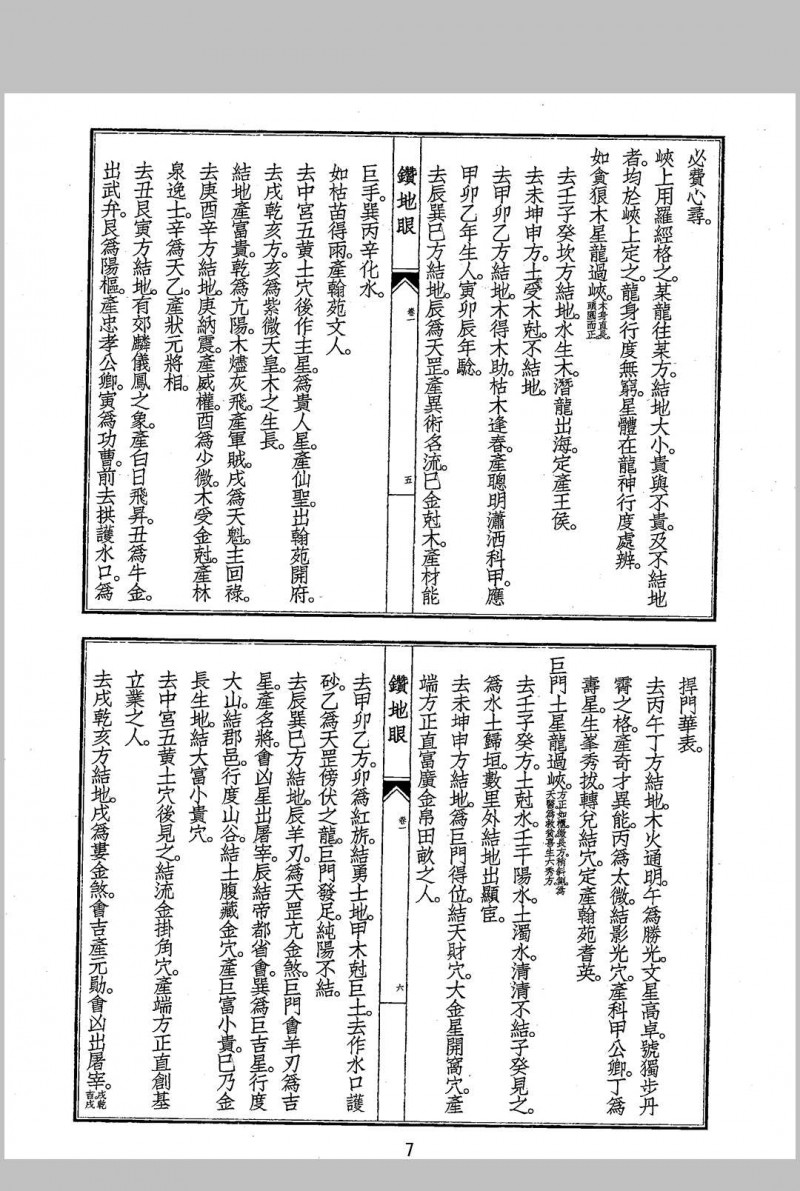 必費心尋。
峽上用羅經格之。某龍往某方。結地大小。貴與不貴。及不結地
者。均於峽上定之。龍身行度無窮。星體在龍神行度處辨。
如貪狼木星龍過峽。木秀直長。頭圓而正
去壬子癸坎方結地。水生木。潛龍出海。定產王侯。
去未坤申方。土受木尅。不結地。
去甲卯乙方結地。木得木助。枯木逢春。產聰明瀟洒科甲。應
甲卯乙年生人。寅卯辰年騐。
去辰巽巳方結地。辰為天罡。產異術名流。巳金尅木。產材能
鑽地眼
卷一
五
巨手。巽丙辛化水。
如枯苗得雨。產翰苑文人。
去中宮五黃土穴後作主星。為貴人星。產仙聖。出翰苑開府。
去戌乾亥方。亥為紫微天皇。木之生長。
結地產富貴。乾為亢陽。木燼灰飛。產軍賊。戌為天魁。主回祿。
去庚酉辛方結地。庚納震。產威權。酉為少微。木受金尅。產林
泉逸士。辛為天乙。產狀元將相。
去丑艮寅方結地。有郊麟儀鳳之象。產白日飛昇。丑為牛金。
出武弁。艮為陽樞。產忠孝公卿。寅為功曹。前去拱護水口。為
捍門華表。
去丙午丁方結地。木火通明。午為勝光。文星高卓。號獨步丹
霄之格。產奇才異能。丙為太微。結影光穴。產科甲公卿。丁為
壽星。生峯秀拔。轉兌結穴。定產翰苑耆英。
巨門土星龍過峽。方正如櫃。
去壬子癸方。土尅水。壬干陽水。土濁水清。清不結。子癸見之。
為水土歸垣。數里外結地。出顯宦。
去未坤申方結地。為巨門得位。結天財穴。大金星開窩穴。產
端方正直。富廣金帛田畝之人。
鑽地眼
卷一
六
去甲卯乙方。卯為紅旂。結勇士地。甲木尅巨土。去作水口護
砂。乙為天罡傍伏之龍。巨門發足。純陽不結。
去辰巽巳方結地。辰羊刃。為天罡亢金煞。巨門會羊刃。為吉
星。產名將。會凶星。出屠宰。辰結帝都省會。巽為巨吉星。行度
大山。結郡邑。行度山谷。結土腹藏金穴。產巨富小貴。巳乃金
長生地。結大富小貴穴。
去中宮五黃土穴後見之。結流金掛角穴。產端方正直創基
立業之人。
去戌乾亥方結地。戌為婁金煞。會吉產元勛。會凶出屠宰。戌乾吉戌
7